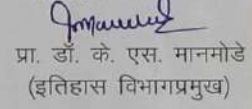 प्रा. डॉ. के. एस. मानमोडे
(इतिहास विभागप्रमुख)